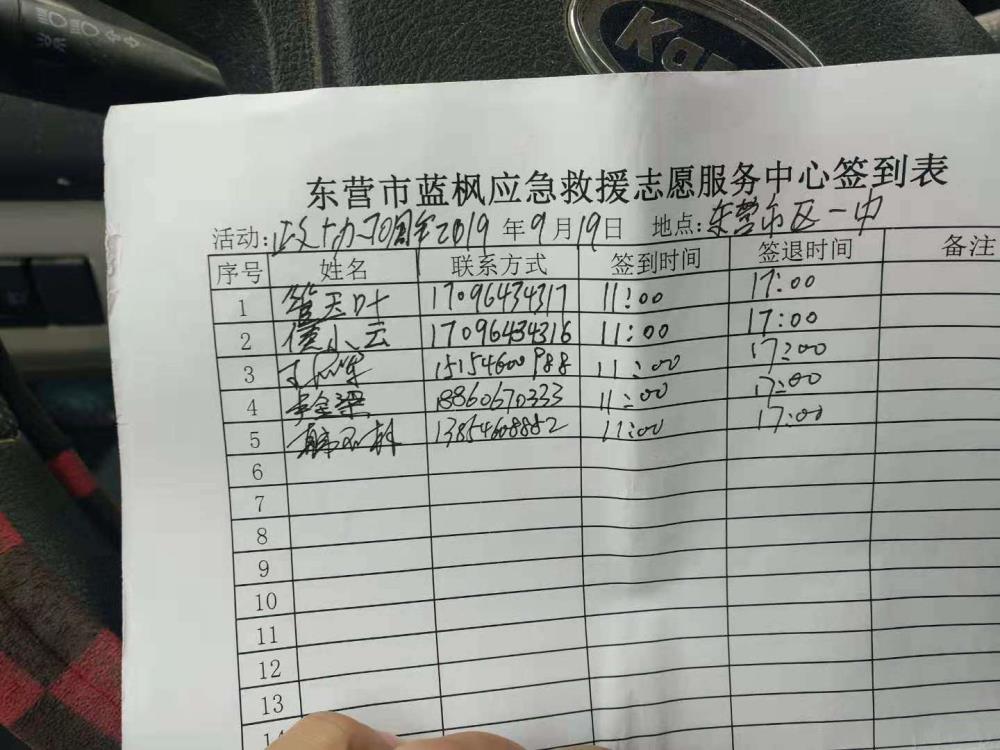 Ka
东营市蓝枫应急救援志愿服务中心签到表
活动:政协70周年2019年9月19日 地点:东营市区一中
序号 姓名 联系方式 签到时间 签退时间 备注
1 管天叶 17096434317 11:00 17:00
2 信小云 17096434316 11:00 17:00
3 15154600988 11:00 17:00
4 李金梁 18860670333 11:00 17:00
5 13854608882 11:00 17:00
6
7
8
9
10
11
12
13
14